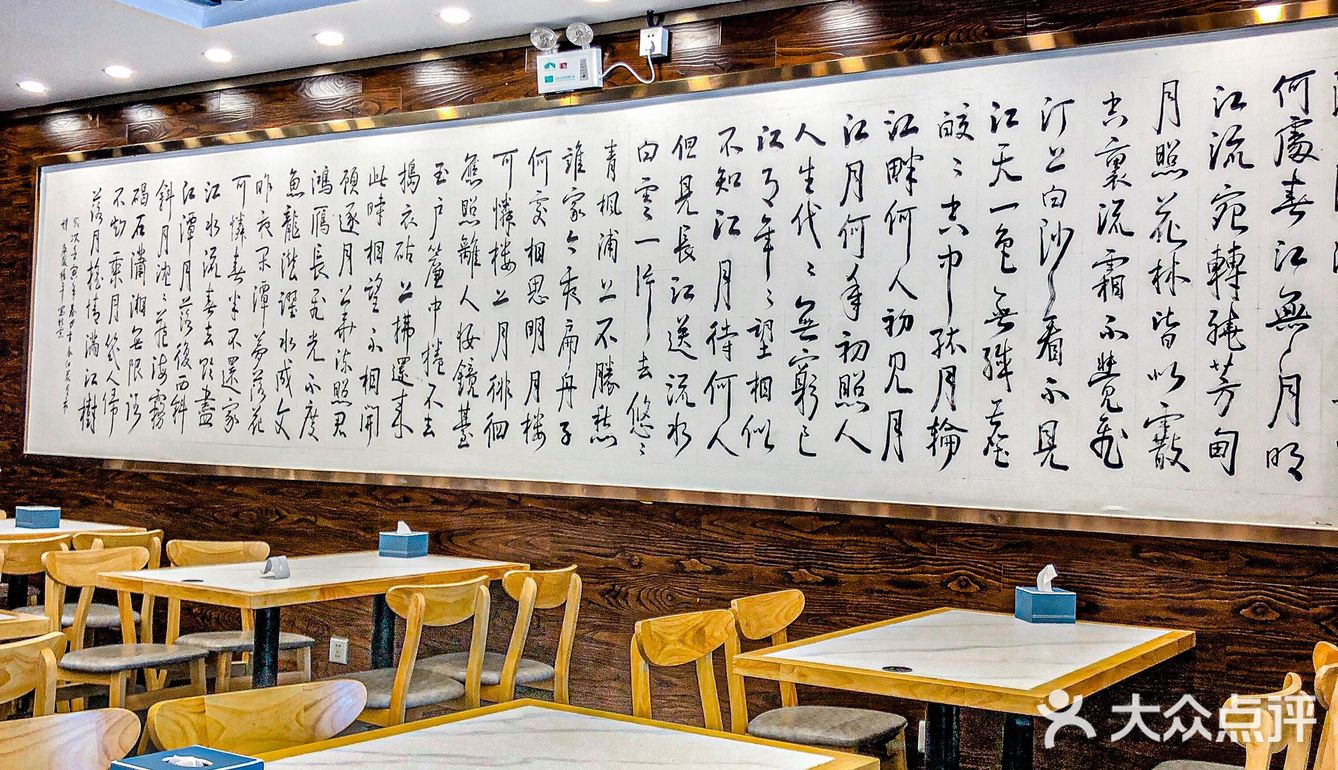 何處春江無月明
江流宛轉繞芳甸
月照花林皆似霰
空裏流霜不覺飛
汀上白沙看不見
江天一色無纖塵
皎〻空中孤月輪
江畔何人初見月
江月何年初照人
人生代〻無窮已
江月年〻望相似
不知江月待何人
但見長江送流水
白雲一片去悠〻
青楓浦上不勝愁
誰家今夜扁舟子
何處相思明月樓
可憐樓上月徘徊
應照離人妝鏡臺
玉戶簾中捲不去
搗衣砧上拂還來
此時相望不相聞
願逐月華流照君
鴻雁長飛光不度
魚龍潛躍水成文
昨夜閑潭夢落花
可憐春半不還家
江水流春去欲盡
江潭月落復西斜
斜月沈〻藏海霧
碣石瀟湘無限路
不知乘月幾人歸
落月搖情滿江樹
大众点评